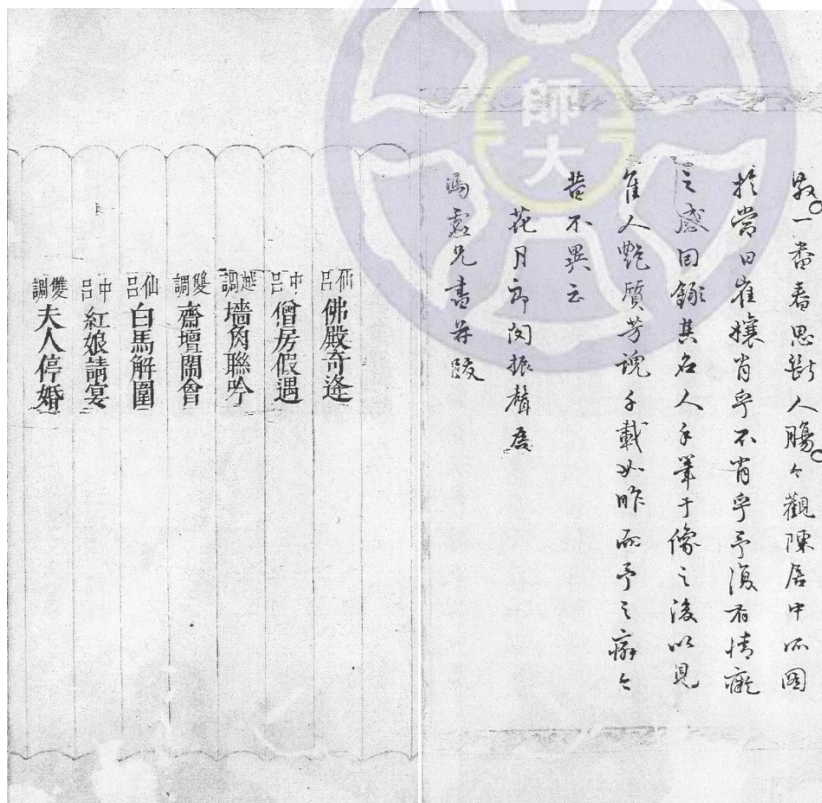 師大
殺一番春思斷人腸今觀陳居中所圖
於當日崔孃肖乎不肖乎予復有情癡
之感因錄其名人手筆于像之後以見
崔人艷質芳魂千載如昨而予之癖今
昔不異云
花月郎閔振聲爲
馮虛兄書并跋
仙呂 佛殿奇逢
中呂 僧房假遇
越調 墻角聯吟
雙調 齋壇鬧會
仙呂 白馬解圍
中呂 紅娘請宴
雙調 夫人停婚